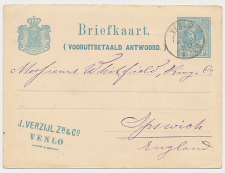 Briefkaart.
(VOORUITBETAALD ANTWOORD.)
Messieurs Whitfield, King & Co
Ipswich
England
J. VERZIJL Zn & Co
VENLO